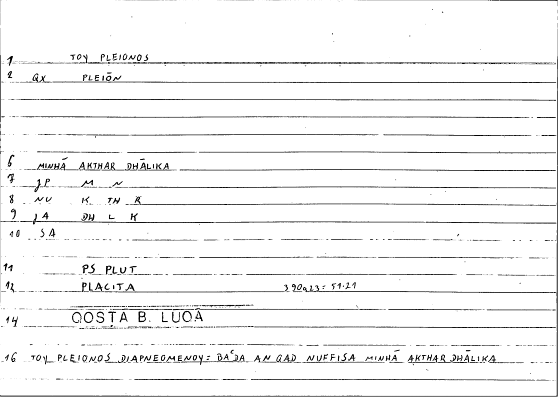 1 TOY PLEIONOS
2 QX PLEIŌN
6 MINHĀ AKTHAR DHĀLIKA
7 JP M N
8 NU K TH R
9 JA DH L K
10 SA
11 PS PLUT
12 PLACITA 390a23 = 51.21
14 QOSTĀ B. LUQĀ
16 TOY PLEIONOS DIAPNEOMENOY = BAʿDA AN QAD NUFFISA MINHĀ AKTHAR DHĀLIKA